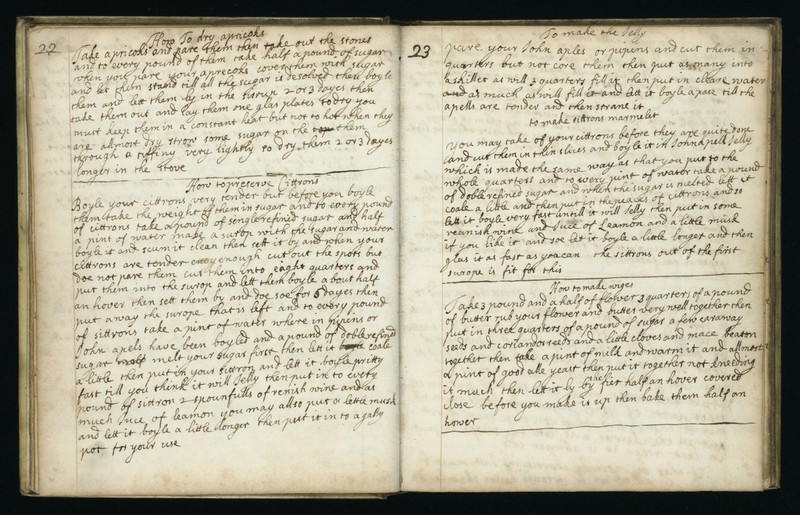 22
How To dry apricoks
Take apricoks and pare them then take out the stones
and to every pound of them take half a pound of sugar
when you pare your aprecoks cover them with sugar
and let them stand till all the sugar is desolved then boyle
them and let them ly in the sirrup 2 or 3 dayes then
take them out and lay them one glas plates to dry you
must keep them in a constant heat but not to hot when they
are allmost dry strow some sugar on the them
through a tiffiny very lightly so dry them 2 or 3 dayes
longer in the stove
How to preserve Cittrons
Boyle your cittrons very tender but before you boyle
them take the weight of them in sugar and to every pound
of cittrons take a pound of single refined sugar and half
a pint of water make a surop with the sugar and water
boyle it and scum it clean then sett it by and when your
cittrons are tender enough cut out the spots but
doe not pare them cut them into eaght quarters and
put them into the surop and lett them boyle about half
an hover then sett them by and doe soe for 6 dayes then
put away the surope that is left and to every pound
of sittrons take a pint of water where in pipins or
John apels have been boyled and a pound of doble refined
sugar melt your sugar first then lett it coole
a little then put in your sittron and lett it boyle pritty
fast till you think it will Jelly then put in to every
pound of sittron 2 spounfulls of renish wine and as
much Juce of leamon you may allso put a lettle musk
and lett it boyle a little longer then put it in to a gally
pot for your use
23
To make the Jelly
pare your John aples or pipins and cut them in
quarters but not core them then put as many into
a skillet as will 3 quarters fill it then put in cleare water
and as much as will fill it and lett it boyle apace till the
apells are tender and then strane it
to make sittrons marmelet
You may take of your cittrons before they are quite done
and cut them in thin slices and boyle it in John apell Jelly
which is made the same way as that you put to the
whole quarters and to every pint of water take a pound
of doble refined sugar and when the sugar is melted lett it
coole a little and then put in the peaces of cittrons and so
lett it boyle very fast untill it will Jelly then put in some
reanish wine and Juce of Leamon and a little musk
if you like it and soe let it boyle a little longer and then
glas it as fast as you can the sittrons out of the first
surope is fit for this
How to make wiges
Take 3 pound and a half of flower 3 quarters of a pound
of butter rub your flower and butter very well together then
put in three quarters of a pound of sugar a few caraway
seeds and coriander seeds and a little cloves and mace beaten
together then take a pint of milk and warm it and allmost
a pint of good ale yeast then put it together not kneeding
it much then lett it ly by the fier half an hover covered
close before you make it up then bake them half an
hower